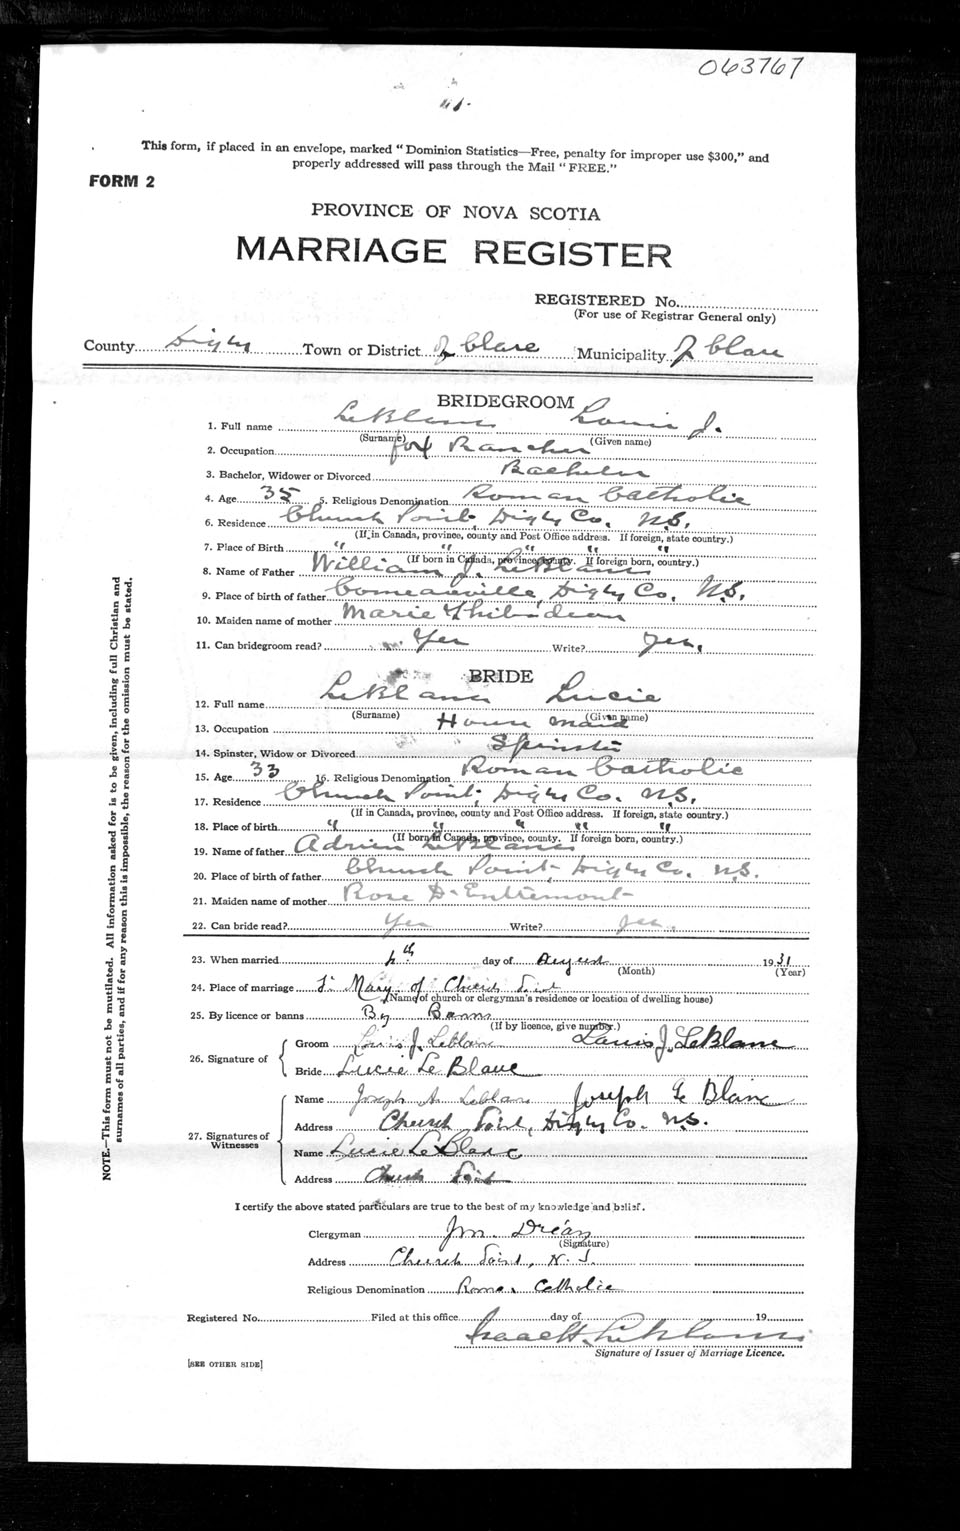 063767
This form, if placed in an envelope, marked "Dominion Statistics—Free, penalty for improper use $300," and
properly addressed will pass through the Mail "FREE."
FORM 2
PROVINCE OF NOVA SCOTIA
MARRIAGE REGISTER
REGISTERED No.
(For use of Registrar General only)
County Digby Town or District of Clare Municipality of Clare
BRIDEGROOM
1. Full name LeBlanc Louis J.
(Surname) (Given name)
2. Occupation Fox Rancher
3. Bachelor, Widower or Divorced Bachelor
4. Age 35 5. Religious Denomination Roman Catholic
6. Residence Church Point, Digby Co. N.S.
(If in Canada, province, county and Post Office address. If foreign, state country.)
7. Place of Birth " " " " "
(If born in Canada, province, county. If foreign born, country.)
8. Name of Father William J. LeBlanc
9. Place of birth of father Comeauville, Digby Co. N.S.
10. Maiden name of mother Marie Thibodeau
11. Can bridegroom read? Yes Write? Yes.
BRIDE
12. Full name LeBlanc Lucie
(Surname) (Given name)
13. Occupation House maid
14. Spinster, Widow or Divorced Spinster
15. Age 33 16. Religious Denomination Roman Catholic
17. Residence Church Point, Digby Co. N.S.
(If in Canada, province, county and Post Office address. If foreign, state country.)
18. Place of birth " " " " "
(If born in Canada, province, county. If foreign born, country.)
19. Name of father Adrien LeBlanc
20. Place of birth of father Church Point, Digby Co. N.S.
21. Maiden name of mother Rose D'Entremont
22. Can bride read? Yes Write? Yes.
23. When married day of August 1931
(Month) (Year)
24. Place of marriage St Mary of Church Point
(Name of church or clergyman's residence or location of dwelling house)
25. By licence or banns By Banns
(If by licence, give number.)
26. Signature of
Groom Louis J. Leblanc Louis J. LeBlanc
Bride Lucie Le Blanc
27. Signatures of Witnesses
Name Joseph A. Leblanc Joseph Le Blanc
Address Church Point, Digby Co. N.S.
Name Lucie LeBlanc
Address Church Point
I certify the above stated particulars are true to the best of my knowledge and belief.
Clergyman Jm. Dréan
(Signature)
Address Church Point, N.S.
Religious Denomination Roman Catholic
Registered No. Filed at this office day of 19
Isaac H. LeBlanc
Signature of Issuer of Marriage Licence.
[SEE OTHER SIDE]
NOTE.—This form must not be mutilated. All information asked for is to be given, including full Christian and
surnames of all parties, and if for any reason this is impossible, the reason for the omission must be stated.